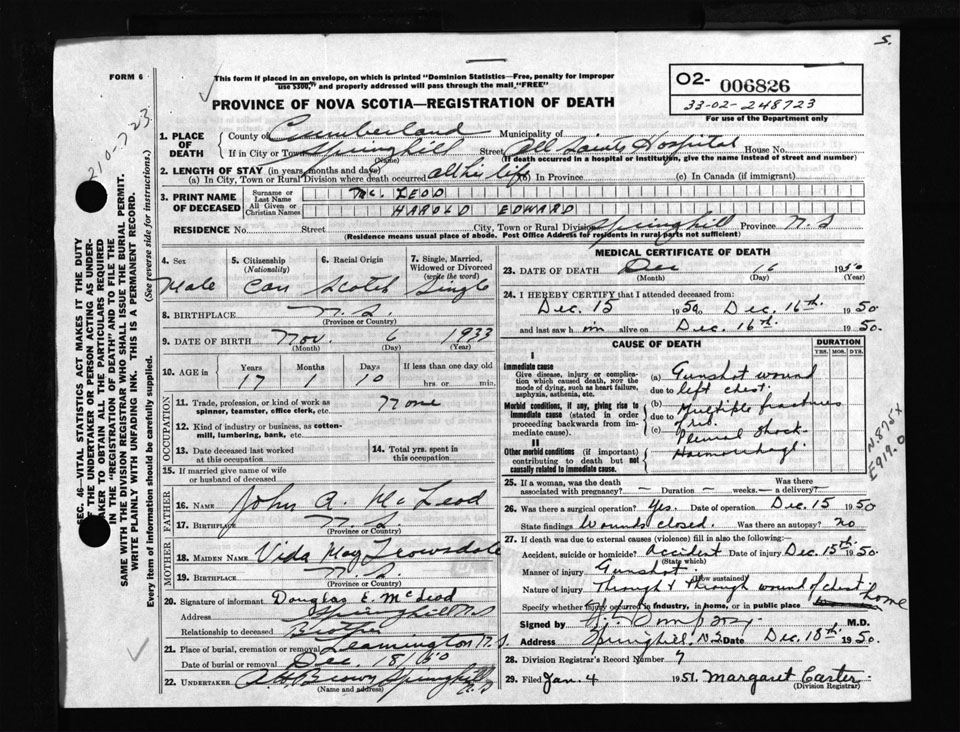 S.
FORM 6
This form if placed in an envelope, on which is printed "Dominion Statistics—Free, penalty for improper
use $300," and properly addressed will pass through the mail "FREE"
O2- 006826
33-02-248723
For use of the Department only
PROVINCE OF NOVA SCOTIA—REGISTRATION OF DEATH
21-0-7-23
SEC. 46—VITAL STATISTICS ACT MAKES IT THE DUTY
OF THE UNDERTAKER OR PERSON ACTING AS UNDER-
TAKER TO OBTAIN ALL THE PARTICULARS REQUIRED
IN THE "REGISTRATION OF DEATH" AND TO FILE THE
SAME WITH THE DIVISION REGISTRAR WHO SHALL ISSUE THE BURIAL PERMIT.
WRITE PLAINLY WITH UNFADING INK. THIS IS A PERMANENT RECORD.
Every item of information should be carefully supplied. (See reverse side for instructions.)
1. PLACE OF DEATH
County of Cumberland Municipality of
If in City or Town Springhill Street All Saints Hospital House No.
(Name) (If death occurred in a hospital or institution, give the name instead of street and number)
2. LENGTH OF STAY (in years, months and days)
(a) In City, Town or Rural Division where death occurred all his life (b) In Province (c) In Canada (if immigrant)
3. PRINT NAME OF DECEASED
Surname or Last Name Mc LEOD
All Given or Christian Names HAROLD EDWARD
RESIDENCE No. Street City, Town or Rural Division Springhill Province N.S
(Residence means usual place of abode. Post Office Address for residents in rural parts not sufficient)
4. Sex Male
5. Citizenship (Nationality) Can
6. Racial Origin Scotch
7. Single, Married, Widowed or Divorced (write the word) Single
8. BIRTHPLACE N.S.
(Province or Country)
9. DATE OF BIRTH Nov. 6 1933
(Month) (Day) (Year)
10. AGE IN Years 17 Months 1 Days 10 If less than one day old hrs. or min.
OCCUPATION
11. Trade, profession, or kind of work as spinner, teamster, office clerk, etc. None
12. Kind of industry or business, as cotton-mill, lumbering, bank, etc.
13. Date deceased last worked at this occupation
14. Total yrs. spent in this occupation
15. If married give name of wife or husband of deceased
FATHER
16. Name John A. McLeod
17. Birthplace N.S.
(Province or Country)
MOTHER
18. Maiden Name Vida May Trowsdale
19. Birthplace N.S.
(Province or Country)
20. Signature of informant Douglas E. McLeod
Address Springhill N.S
Relationship to deceased Brother
21. Place of burial, cremation or removal Leamington N.S.
Date of burial or removal Dec. 18/50
22. UNDERTAKER A.H. Brown Springhill N.S
(Name and address)
MEDICAL CERTIFICATE OF DEATH
23. DATE OF DEATH Dec 16 1950
(Month) (Day) (Year)
24. I HEREBY CERTIFY that I attended deceased from:
Dec. 15 1950 Dec. 16th. 1950
and last saw him alive on Dec. 16th. 1950.
CAUSE OF DEATH
DURATION
YRS. MOS. DYS.
I
Immediate cause
Give disease, injury or complication which caused death, NOT the mode of dying, such as heart failure, asphyxia, asthenia, etc.
(a) Gunshot wound
due to left chest.
Morbid conditions, if any, giving rise to immediate cause (stated in order proceeding backwards from immediate cause).
(b) Multiple fractures
due to of rib.
(c) Pleural Shock-
II
Other morbid conditions (if important) contributing to death but not causally related to immediate cause.
Haemorrhage
N.875X
E919.0
25. If a woman, was the death associated with pregnancy? — Duration — weeks.— Was there a delivery? —
26. Was there a surgical operation? Yes. Date of operation Dec. 15 1950
State findings Wounds closed. Was there an autopsy? no
27. If death was due to external causes (violence) fill in also the following:—
Accident, suicide or homicide? Accident Date of injury Dec. 15th. 1950.
(State which)
Manner of injury Gunshot.
(How sustained)
Nature of injury Through & through wound of chest
Specify whether injury occurred in industry, in home, or in public place home
Signed by M.D.
Address Springhill. N.S Date Dec. 18th. 1950.
28. Division Registrar's Record Number 7
29. Filed Jan. 4 1951. Margaret Carter
(Division Registrar)